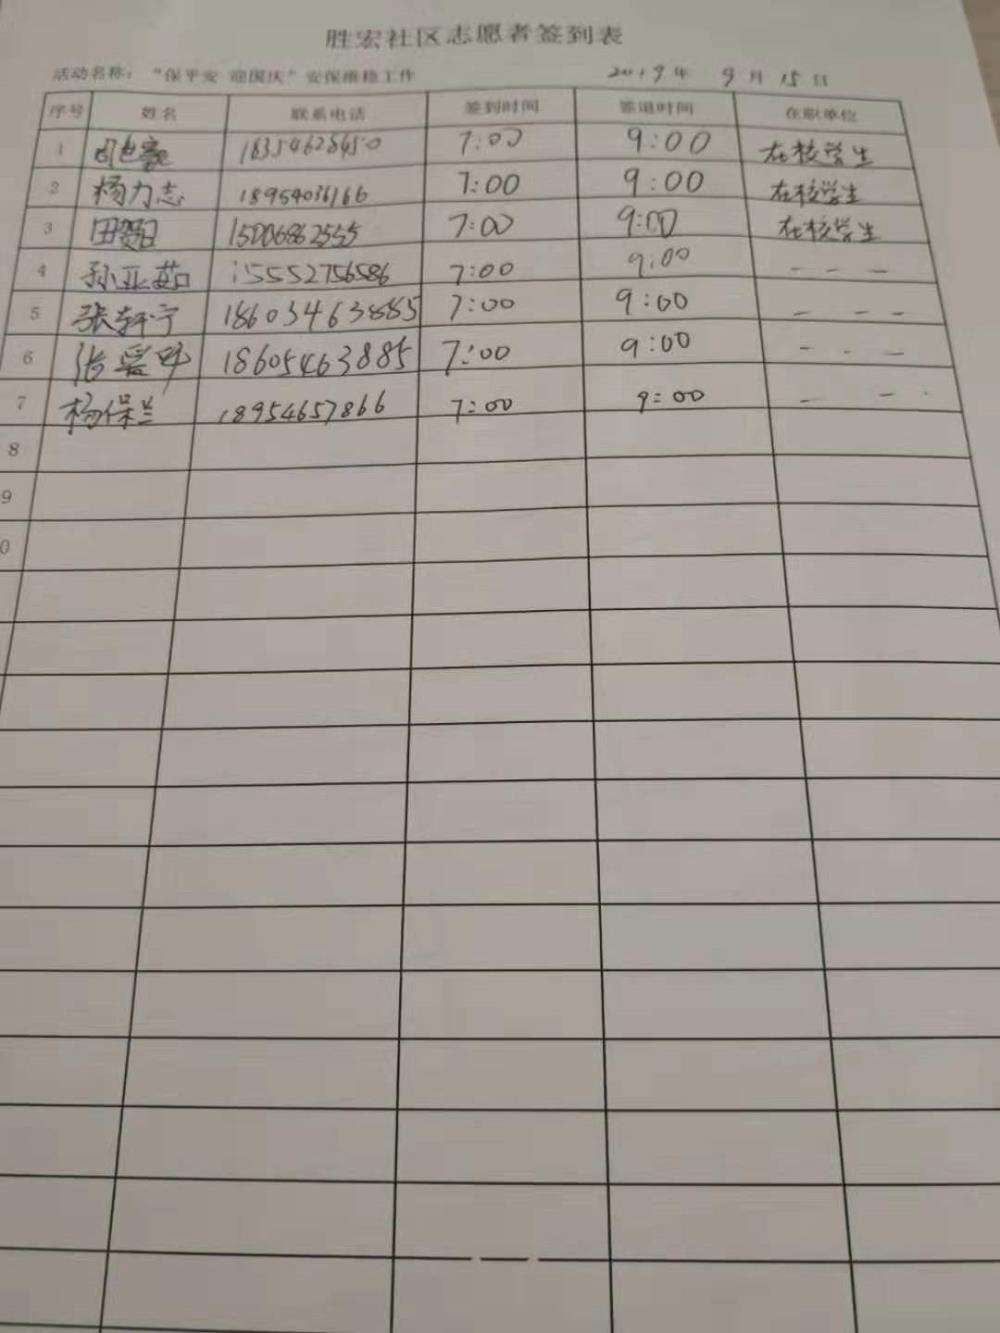 胜宏社区志愿者签到表
活动名称：“保平安 迎国庆”安保维稳工作 2019年 9月 15日
序号 姓名 联系电话 签到时间 签退时间 在职单位
1 18354628450 7:00 9:00 在校学生
2 杨力志 18954036166 7:00 9:00 在校学生
3 15006862555 7:00 9:00 在校学生
4 孙亚茹 15552756586 7:00 9:00 - - -
5 张轩宁 18603463885 7:00 9:00 - - -
6 张爱叶 18605463885 7:00 9:00 - - -
7 杨保兰 18954657866 7:00 9:00 - - -
8
9
0